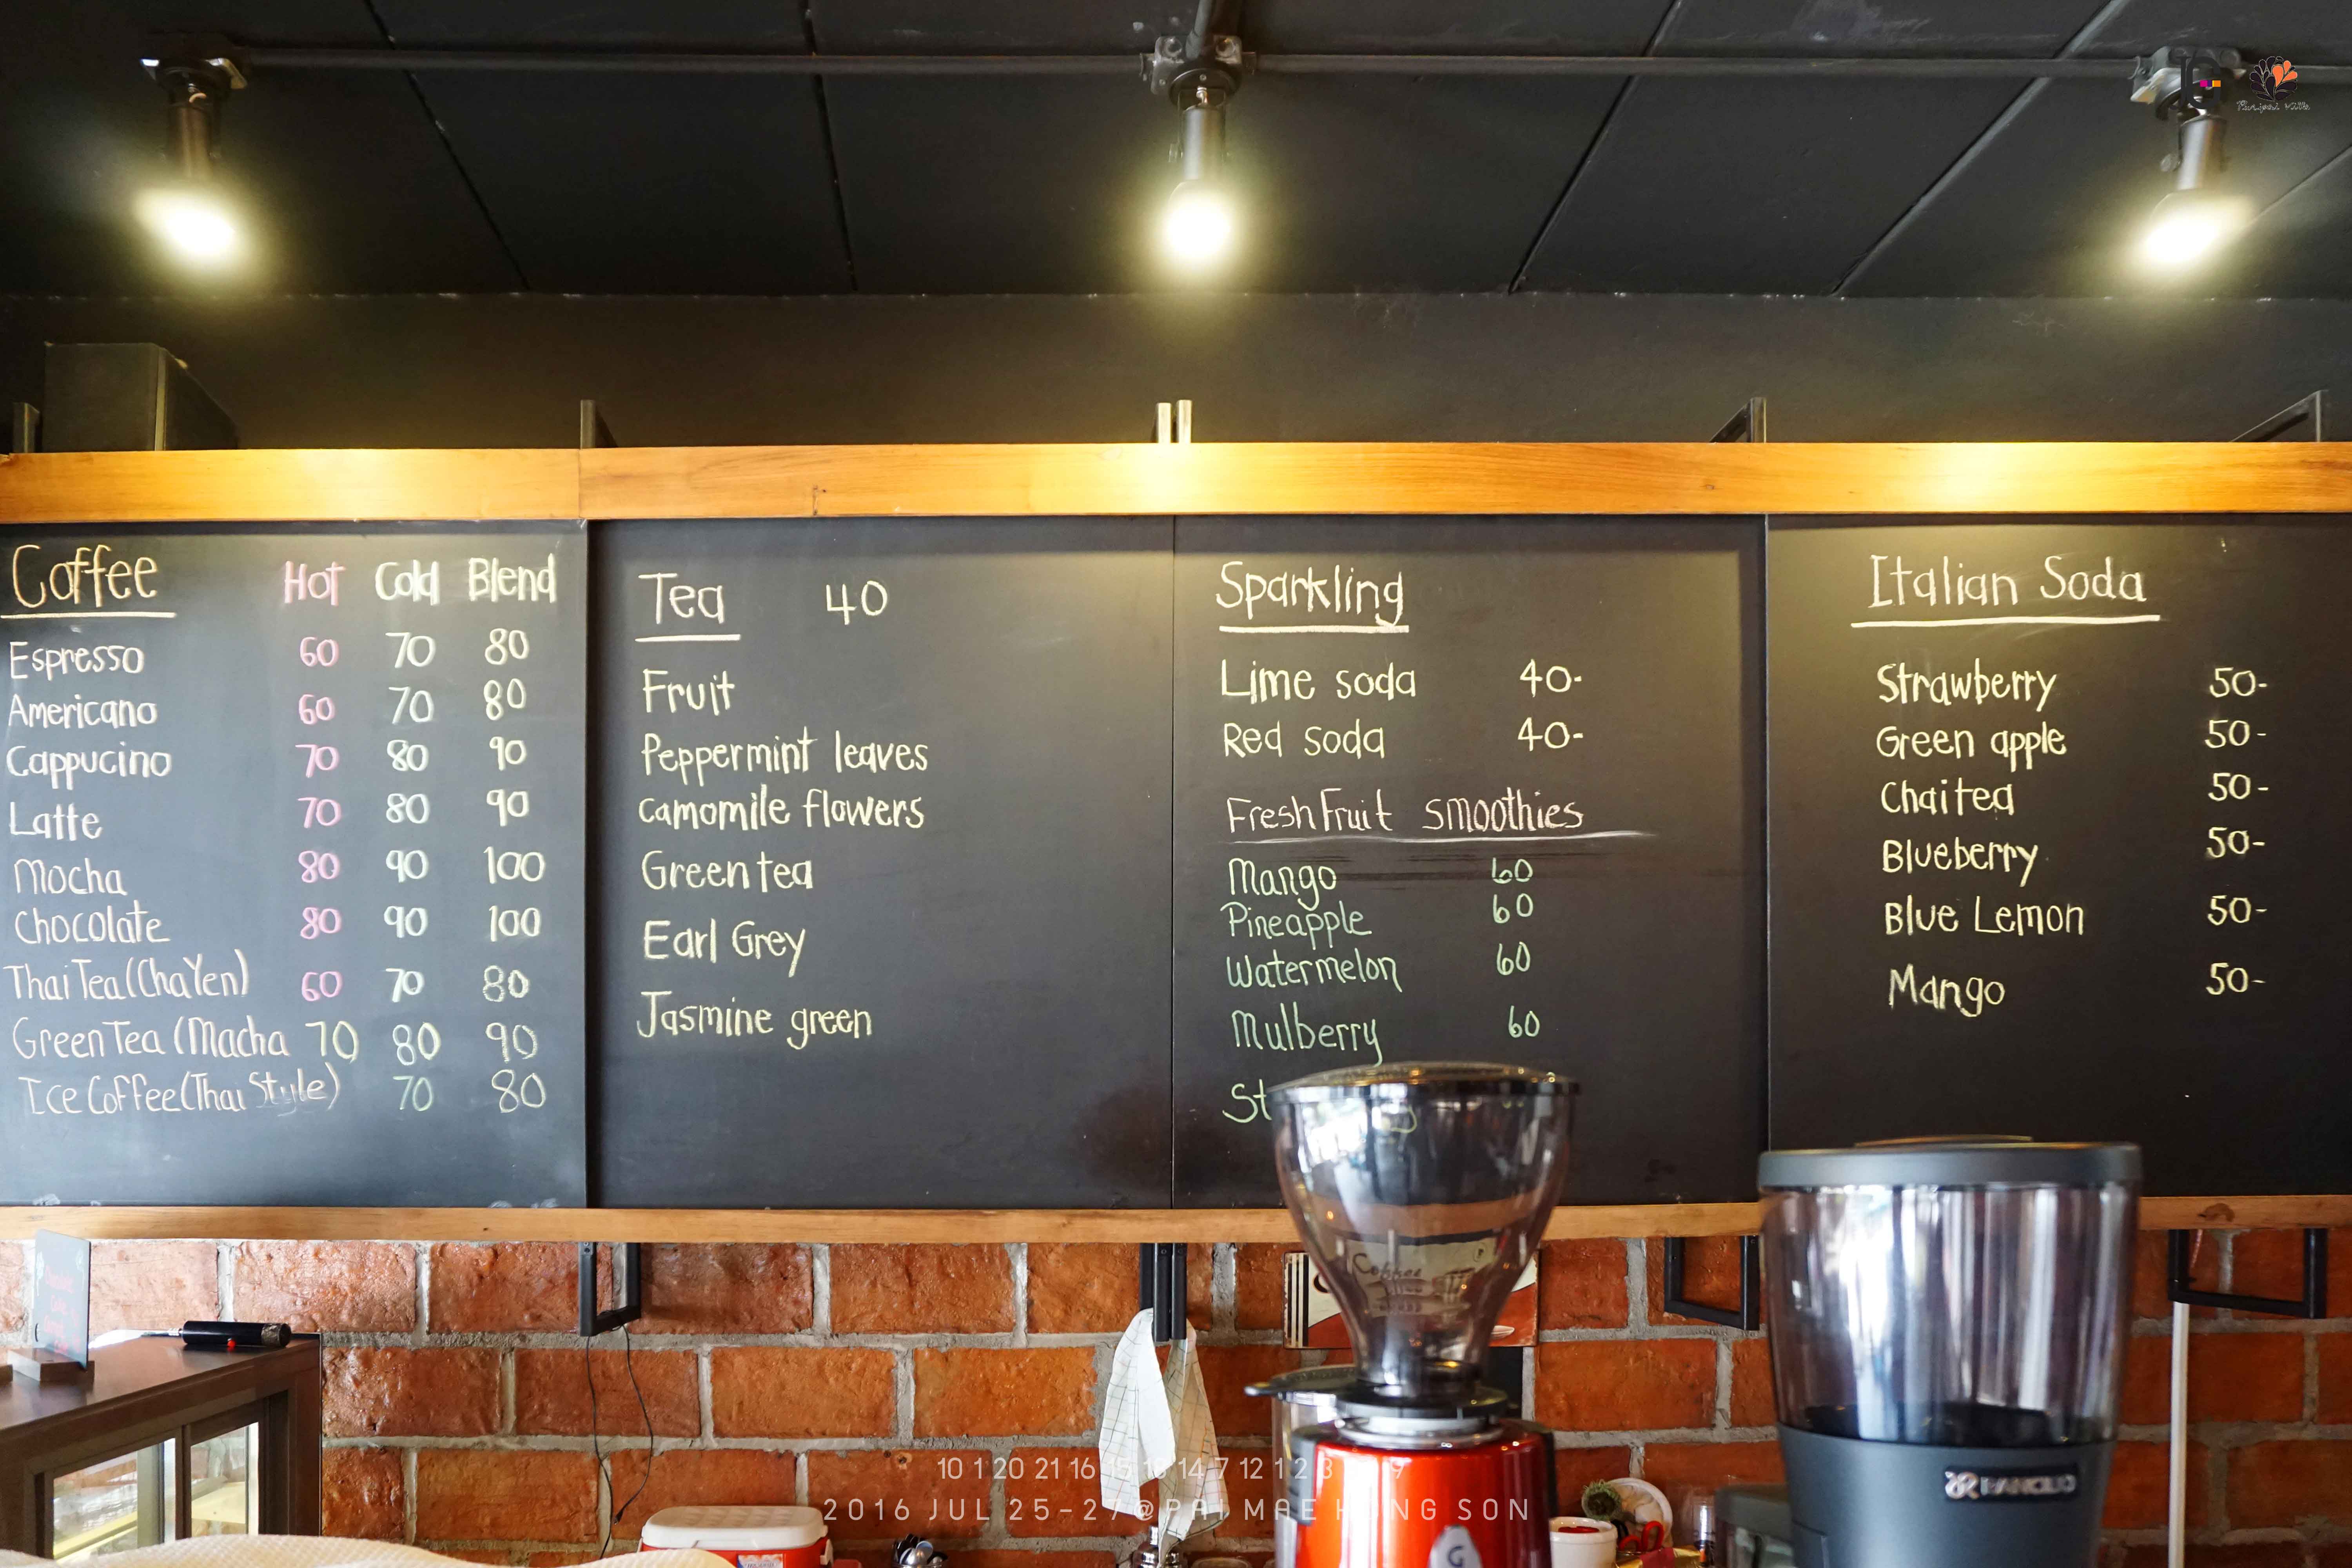 Coffee Hot Cold Blend
Espresso 60 70 80
Americano 60 70 80
Cappucino 70 80 90
Latte 70 80 90
Mocha 80 90 100
Chocolate 80 90 100
Thai Tea (Cha Yen) 60 70 80
Green Tea (Macha 70 80 90
Ice Coffee (Thai Style) 70 80
Tea 40
Fruit
Peppermint leaves
camomile flowers
Green tea
Earl Grey
Jasmine green
Sparkling
Lime soda 40-
Red soda 40-
Fresh Fruit smoothies
Mango 60
Pineapple 60
Watermelon 60
Mulberry 60
Italian Soda
Strawberry 50-
Green apple 50-
Chai tea 50-
Blueberry 50-
Blue Lemon 50-
Mango 50-
Coffee
RANCILIO
G
10 1 20 21 16 15 18 14 7 12 1 2 3 9
2016 JUL 25-27@PAI MAE HONG SON